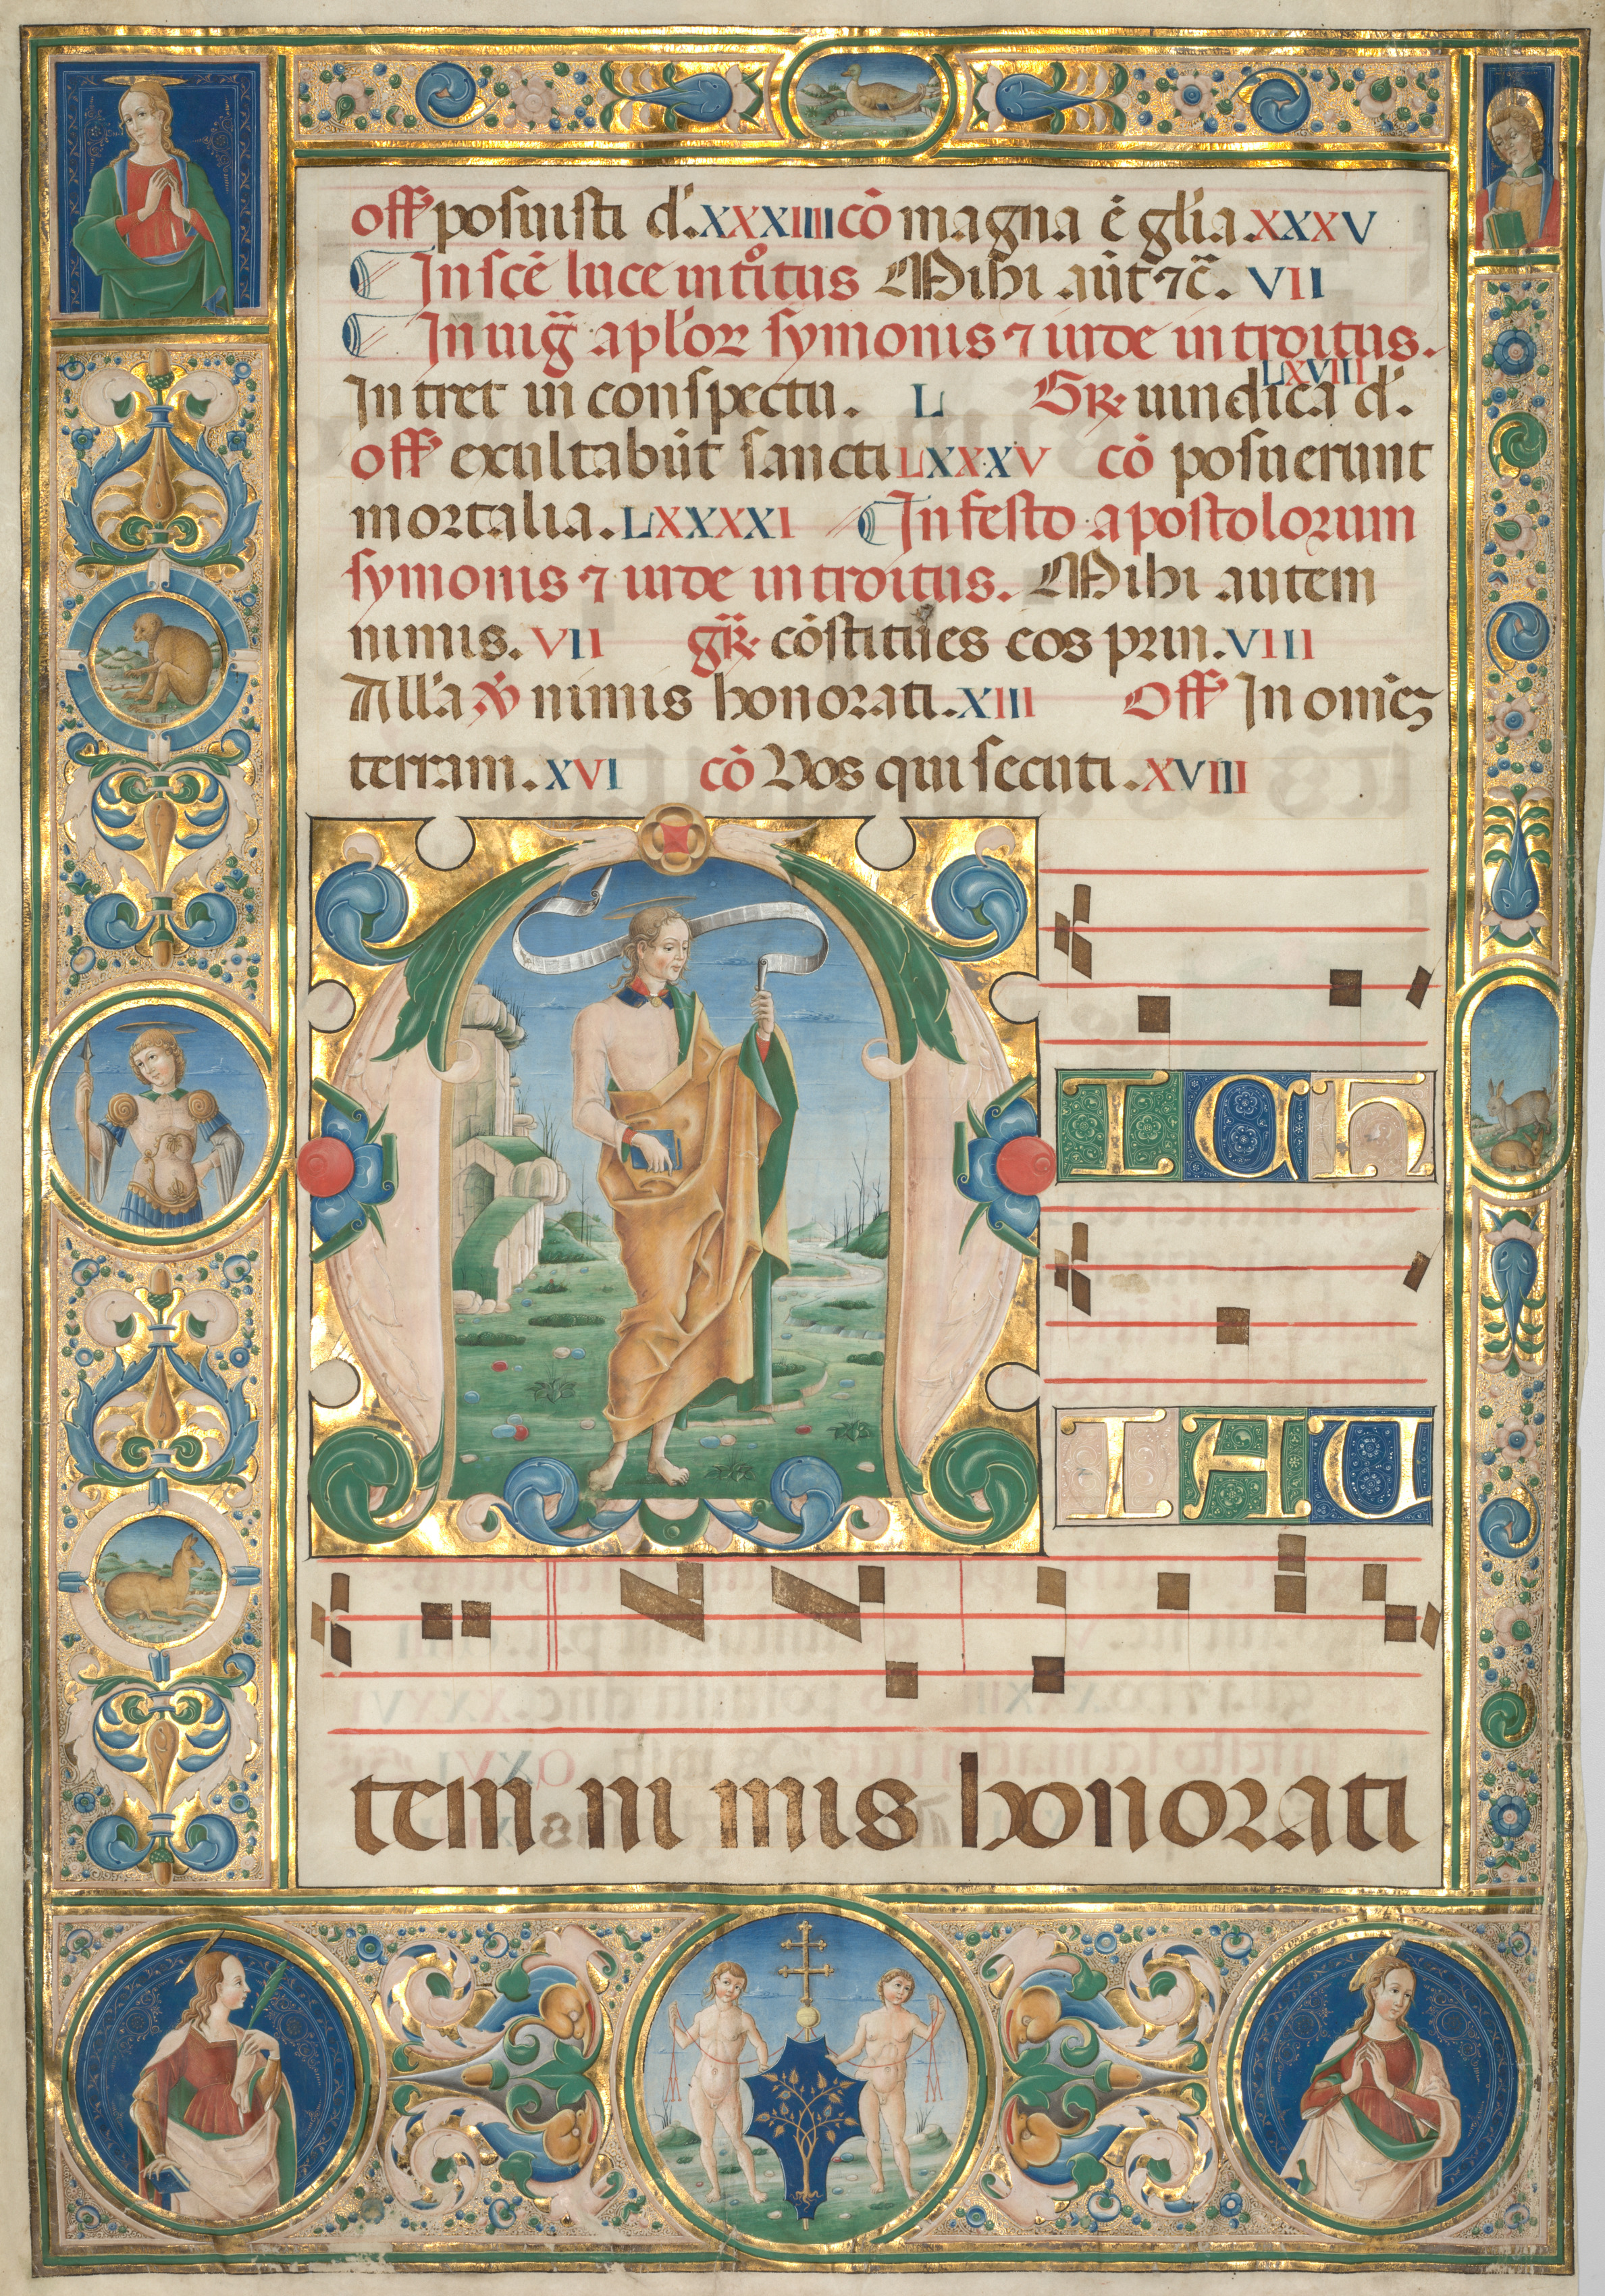 off posuisti d̕. XXXIIII cō magna ē gl̕ia. XXXV
In scē luce introitus Mihi aūt ⁊c̄. VII
In uig̃ aplōꝝ symonis ⁊ iude introitus.
LXVIII
Intret in conspectu. L Gꝶ uindica d̕.
off exultabūt sancti LXXXV cō posuerunt
mortalia. LXXXXI In festo apostolorum
symonis ⁊ iude introitus. Mihi autem
nimis. VII gꝶ cōstitues eos prin. VIII
All̕a ℣ nimis honorati. XIII Off In omēꝫ
terram. XVI cō Vos qui secuti. XVIII
M ICH
I AU
tem ni mis honorati